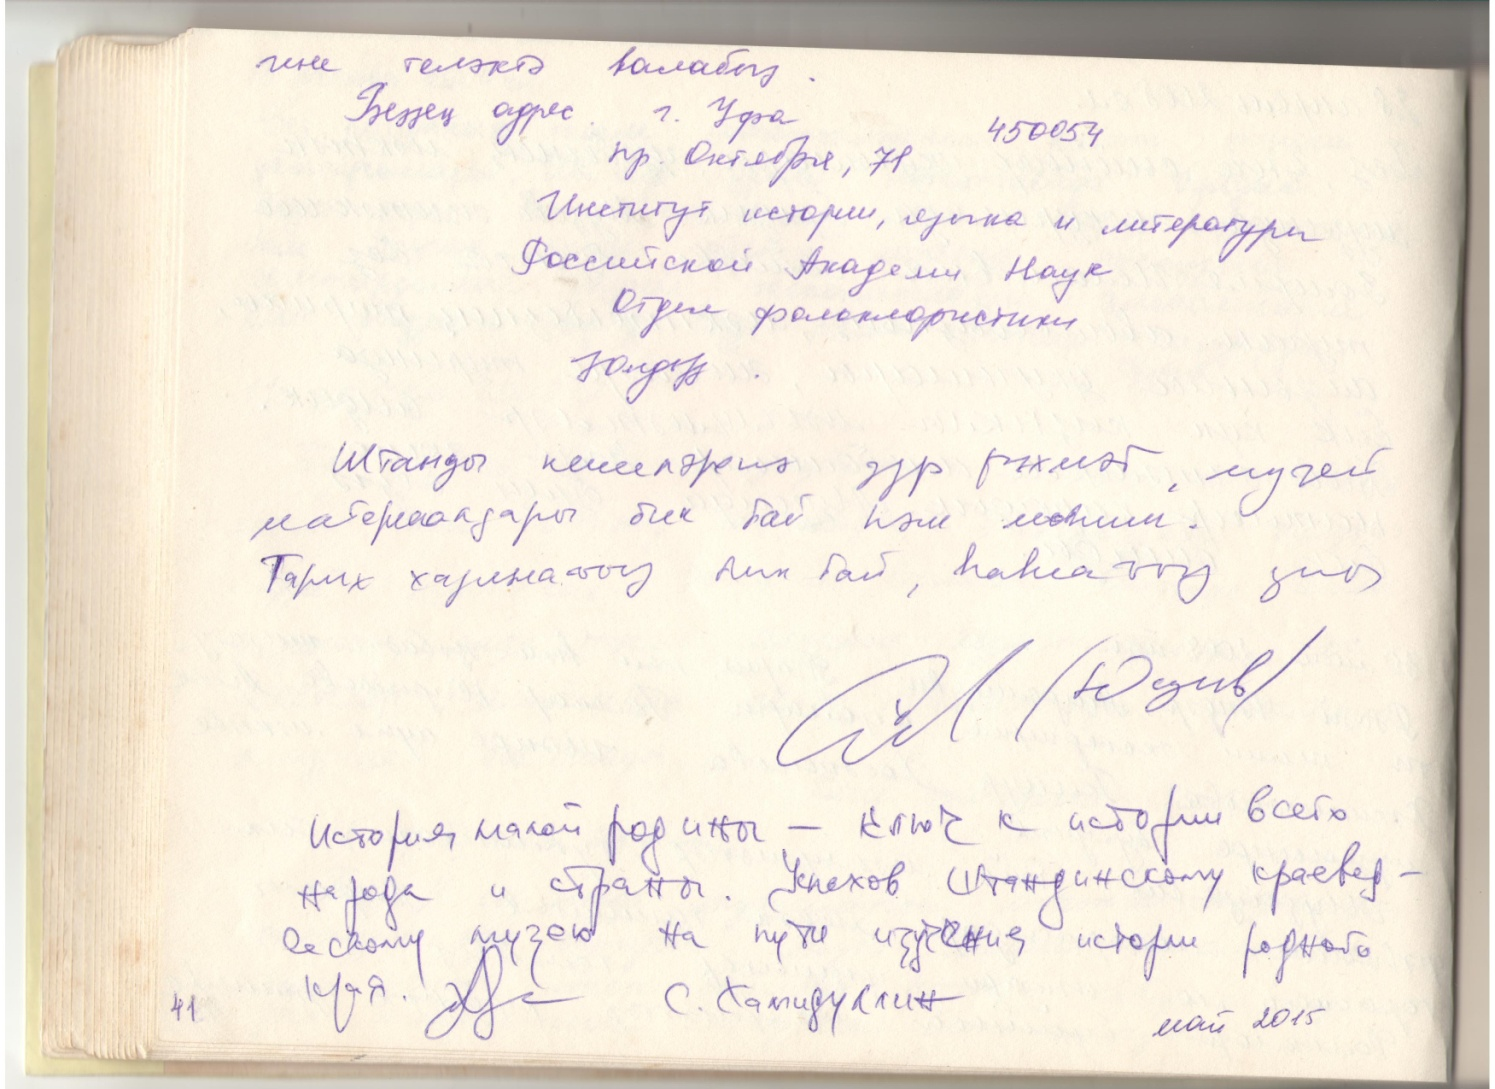 гене теләктә ҡалабыҙ.
Беҙҙең адрес. г. Уфа 450054
пр. Октября, 71
Институт истории, языка и литературы
Российской Академи Наук
Отдел фольклористики
Юлдаш.
Штанды кешеләренә ҙур рәхмәт, музей
материалдары бик бай һәм мөһим.
Тарих хазинағыҙ бик бай, һаҡлағыҙ уны
История малой родины — ключ к истории всего
народа и страны. Успехов Штандинскому краевед-
ческому музею на пути изучения истории родного
края. С. Хамидуллин
41 май 2015